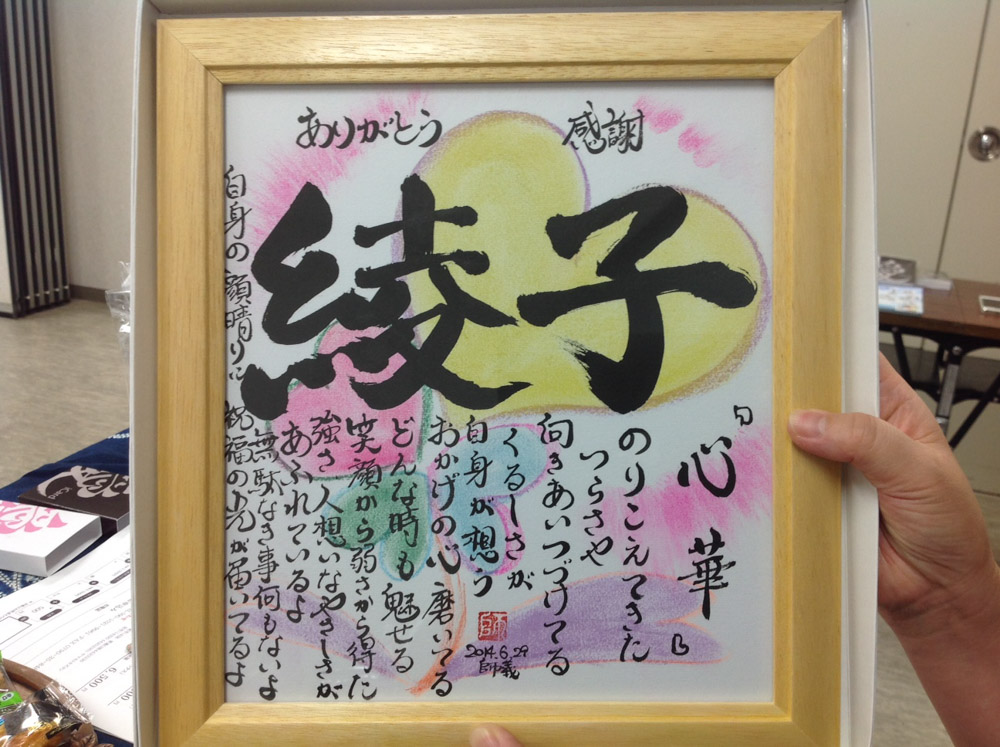 ありがとう
感謝
綾子
心華
のりこえてきた
つらさや
向きあいつづけてる
くるしさが
自身が想う
おかげの心磨いてる
どんな時も魅せる
笑顔から弱さから得た
強さ人想いなやさしさが
あふれているよ
無駄なき事何もないよ
自身の顔晴りに祝福の光が届いてるよ
2014.6.29
師義
6,500